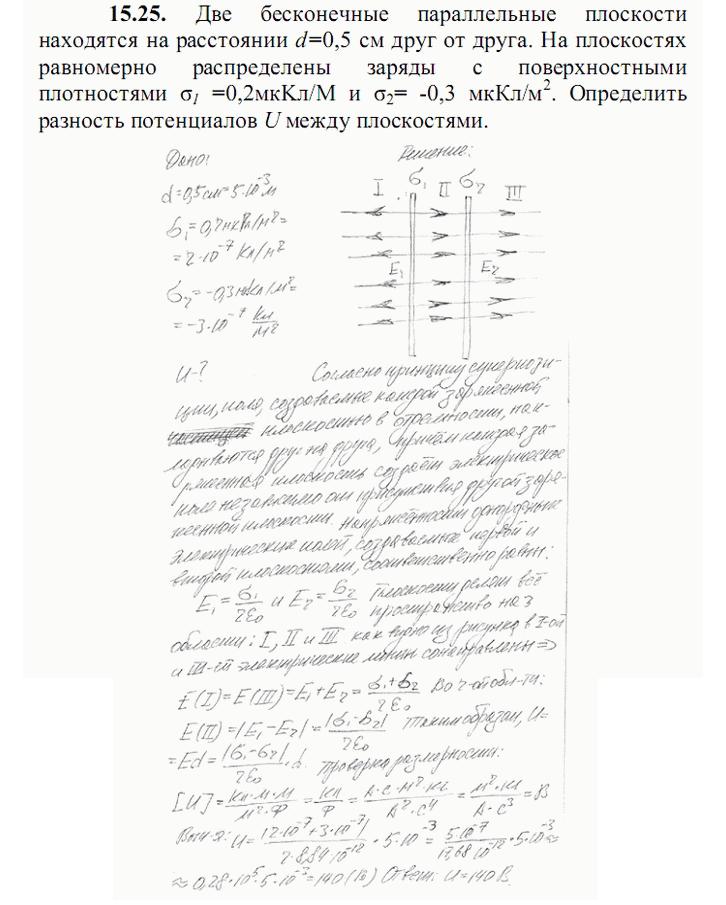 15.25. Две бесконечные параллельные плоскости
находятся на расстоянии d=0,5 см друг от друга. На плоскостях
равномерно распределены заряды с поверхностными
плотностями σ1 =0,2мкКл/М и σ2= -0,3 мкКл/м². Определить
разность потенциалов U между плоскостями.
Дано:
d=0,5см=5·10⁻³м
σ₁=0,2мкКл/м²=
=2·10⁻⁷ Кл/м²
σ₂=-0,3мкКл/м²=
=-3·10⁻⁷ Кл/м²
U-?
Решение:
I σ₁ II σ₂ III
E₁ E₂
Согласно принципу суперпози-
ции, поля, создаваемые каждой заряженной
плоскостью в отдельности, нак-
ладываются друг на друга, причём каждая за-
ряженная плоскость создаёт электрическое
поле независимо от присутствия другой заря-
женной плоскости. Напряжённости однородных
электрических полей, создаваемые первой и
второй плоскостями, соответственно равны:
E₁=σ₁/2ε₀ и E₂=σ₂/2ε₀ Плоскости делят всё
пространство на 3
области: I, II и III как видно из рисунка в I-ой
и III-ей электрические линии сонаправлены =>
E(I)=E(III)=E₁+E₂=σ₁+σ₂/2ε₀ Во 2-ой обл-ти:
E(II)=|E₁-E₂|=|σ₁-σ₂|/2ε₀ Таким образом, U=
=Ed=|σ₁-σ₂|/2ε₀·d. Проверка размерности:
[U]=Кл·м·м/м²·Ф=Кл/Ф=А·с·м²·кг/А²·с⁴=м²·кг/А·с³=В
Выч-я: U=|2·10⁻⁷+3·10⁻⁷|/2·8,84·10⁻¹²·5·10⁻³=5·10⁻⁷/17,68·10⁻¹²·5·10⁻³≈
≈0,28·10⁵·5·10⁻³=140(В) Ответ: U=140В.